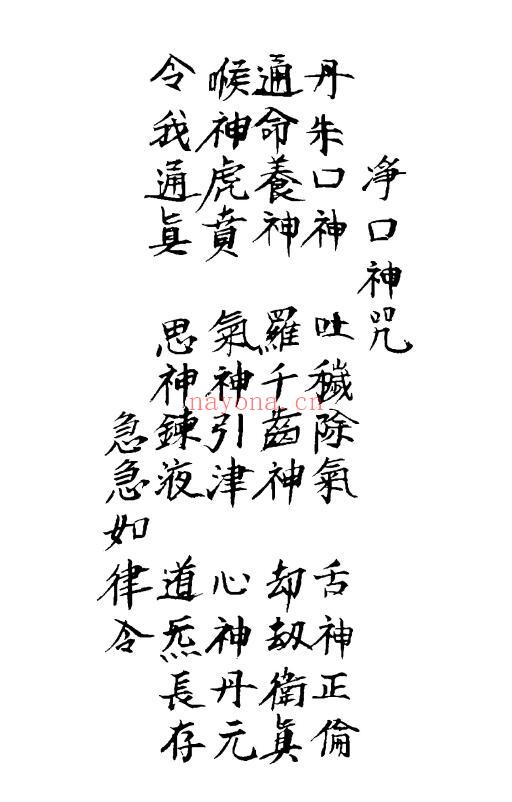 淨口神咒
丹朱口神 吐穢除氣 舌神正倫
通命養神 羅千齒神 却劾衛眞
喉神虎賁 氣神引津 心神丹元
令我通眞 思神鍊液 道炁長存
急急如律令
nayona.cn